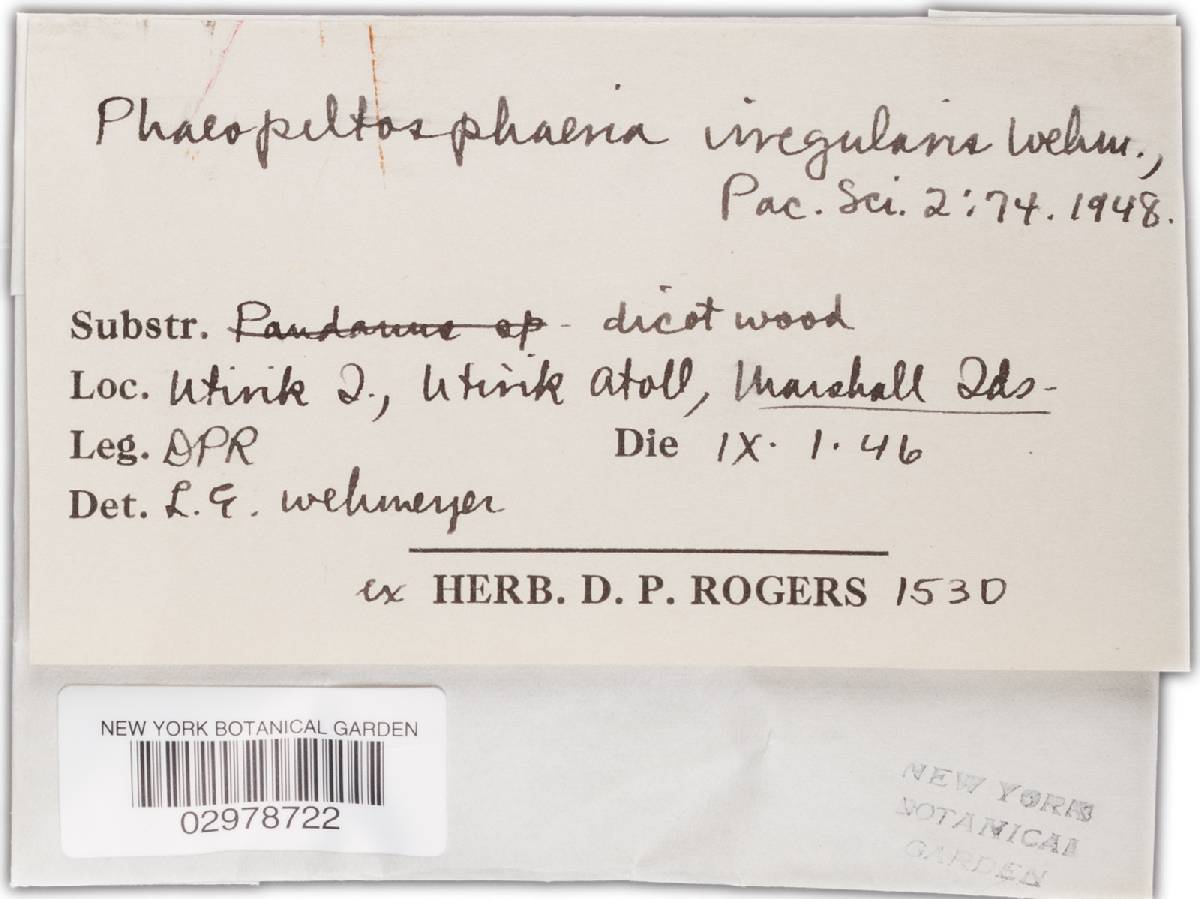 Phaeopeltosphaeria irregularis Wehm.,
Pac. Sci. 2:74. 1948.
Substr. Pandanus sp - dicot wood
Loc. Utirik I., Utirik Atoll, Marshall Ids-
Leg. DPR Die IX. 1. 46
Det. L. E. Wehmeyer
ex HERB. D. P. ROGERS 1530
NEW YORK BOTANICAL GARDEN
02978722
NEW YORK
BOTANICAL
GARDEN